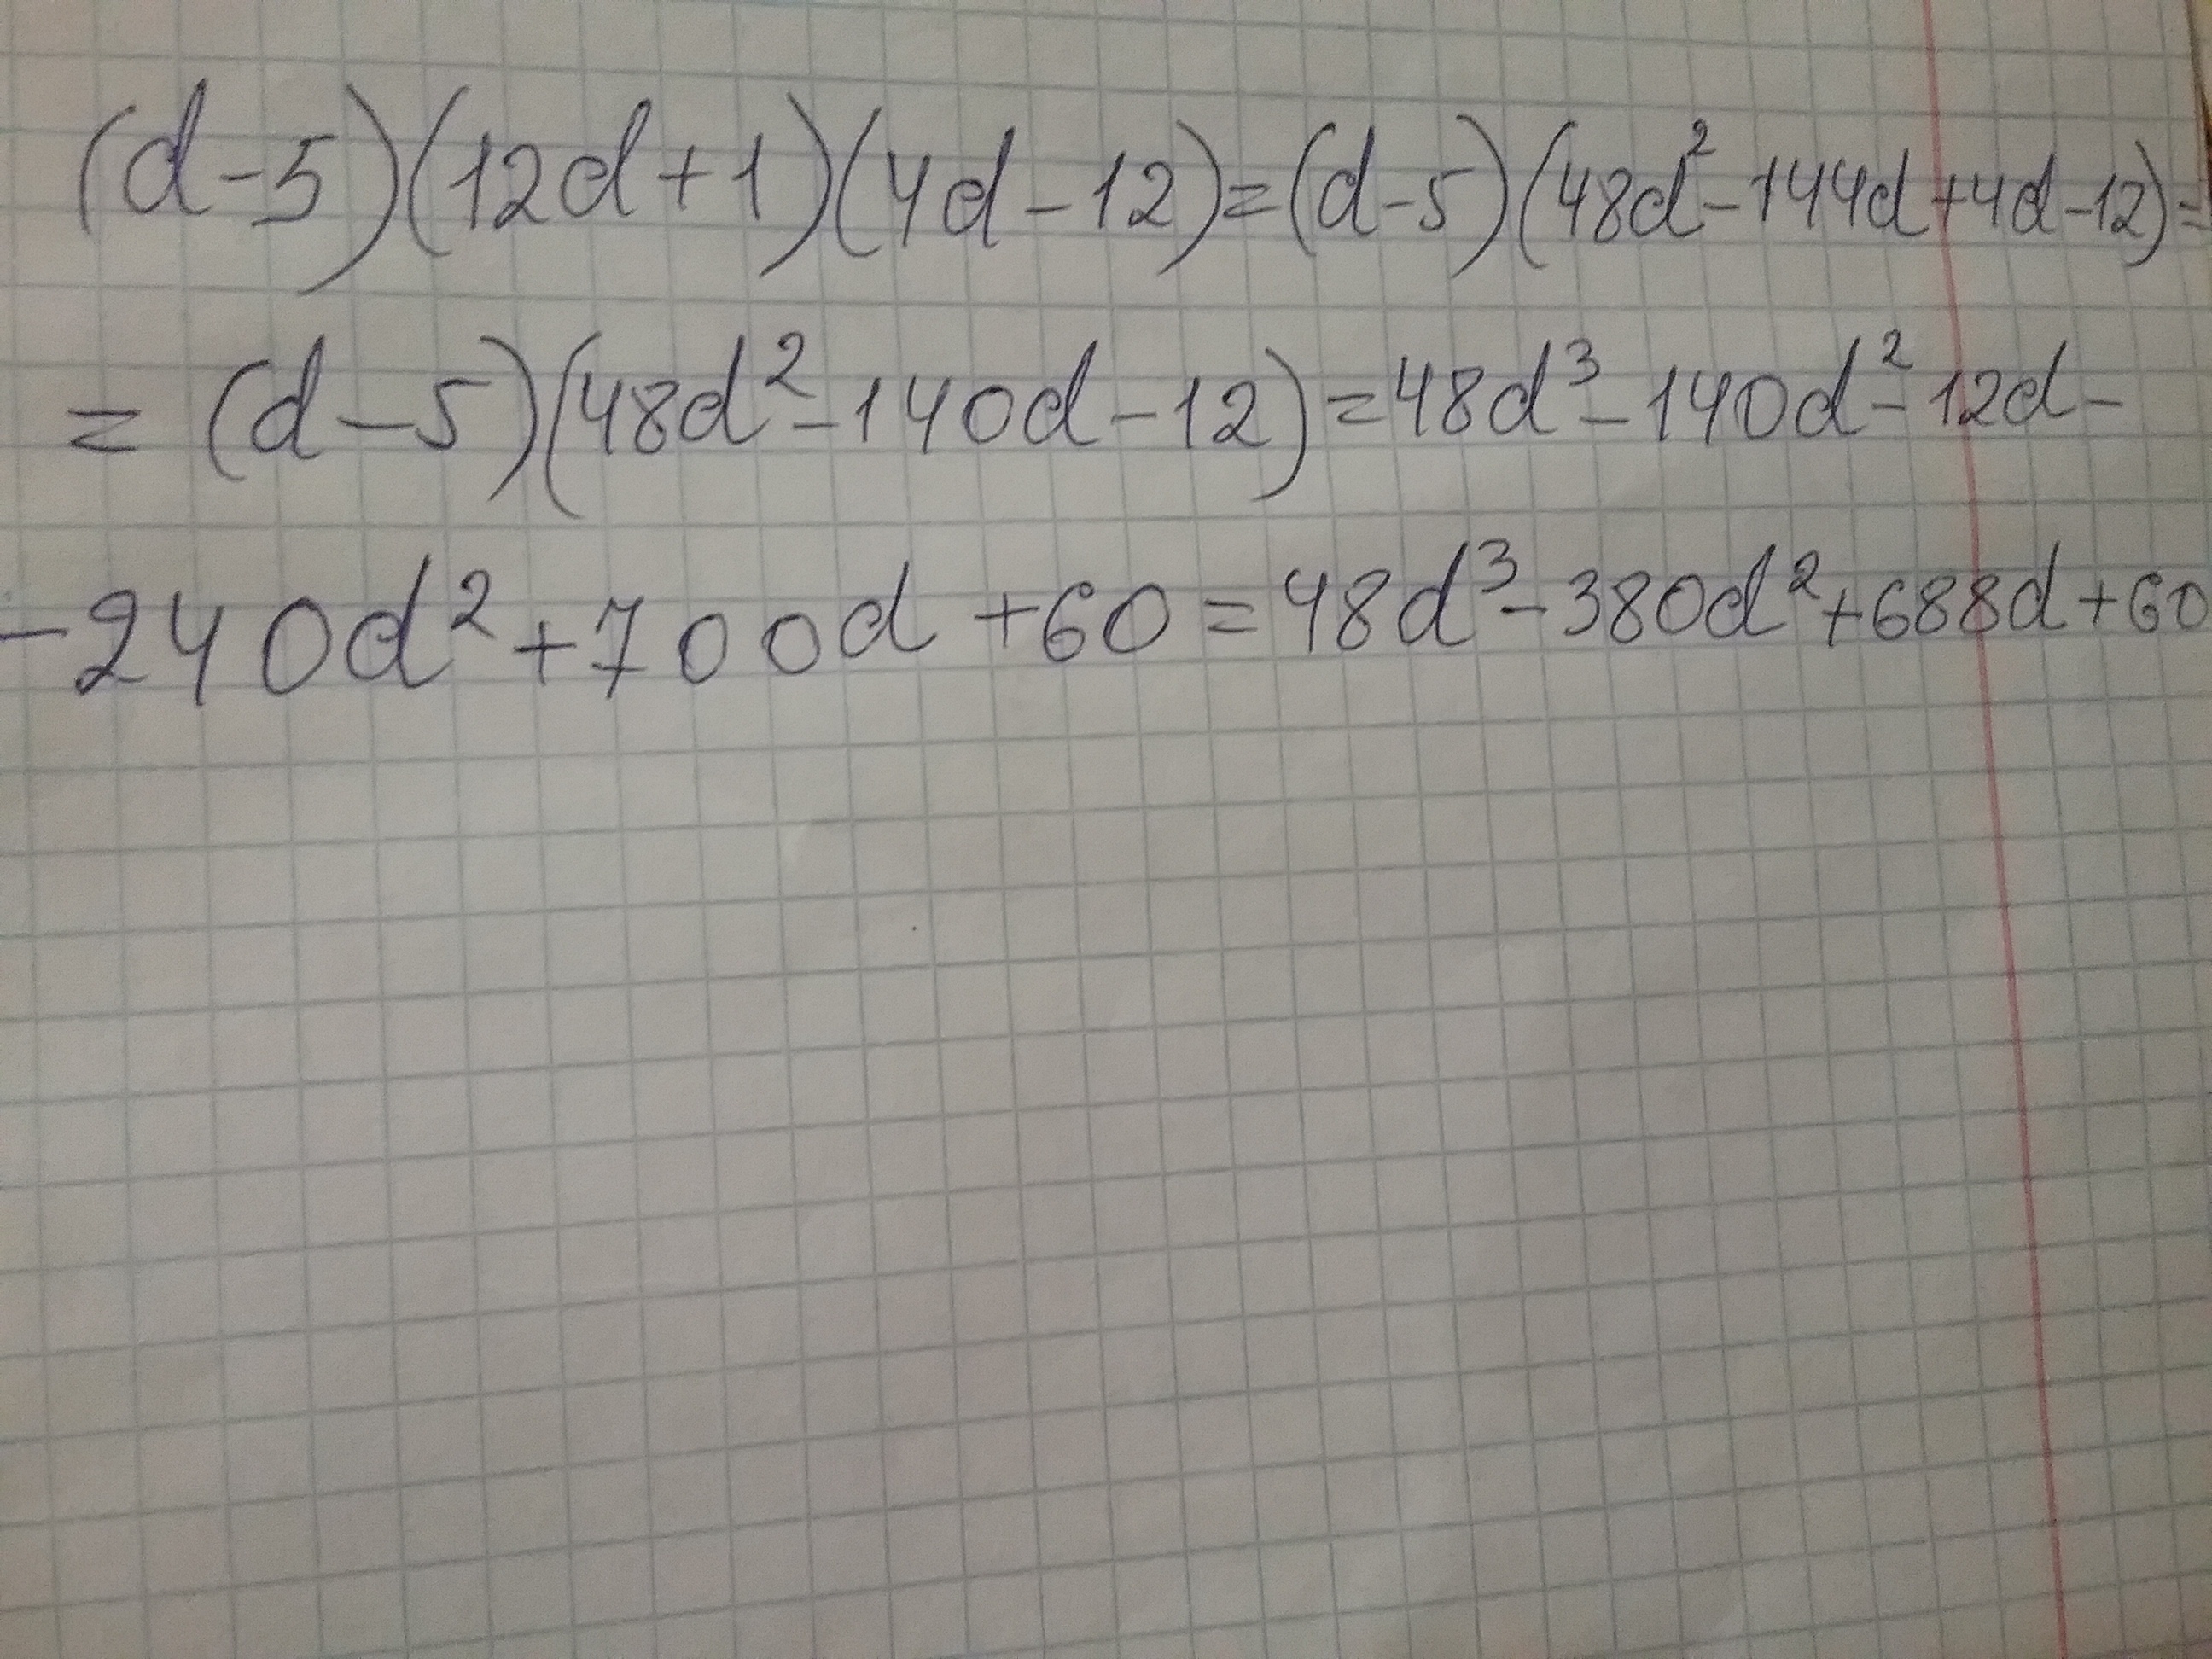 (d-5)(12d+1)(4d-12)=(d-5)(48d²-144d+4d-12)=
=(d-5)(48d²-140d-12)=48d³-140d²-12d-
-240d²+700d+60=48d³-380d²+688d+60